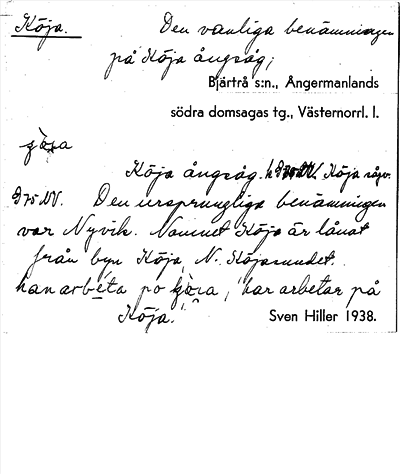 Köja. Den vanliga benämningen
på Köja ångsåg,
Bjärtrå s:n., Ångermanlands
södra domsagas tg., Västernorrl. l.
Köja ångsåg. Köja sågv.
Den ursprungliga benämningen
var Nyvik. Namnet Köja är lånat
från byn Köja, N. Köjasundet.
han arbeta po, har arbetar på
Köja.
Sven Hiller 1938.